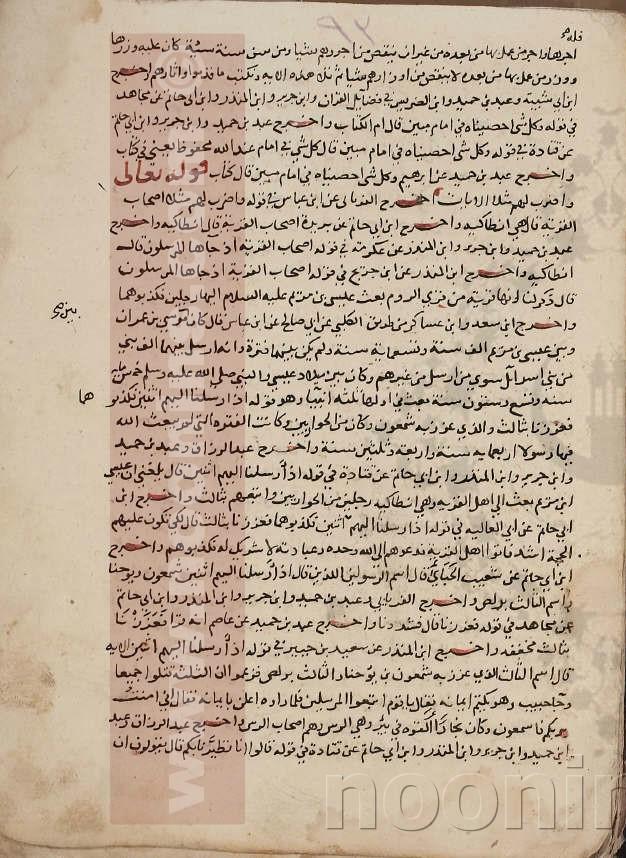 فله
اجرها واجر من عمل بها من بعده من غير ان ينقص من اجورهم شيا ومن سن سنة سيئة كان عليه وزرها
ووزر من عمل بها من بعده لا ينقص من اوزارهم شيا ثم تلا هذه الاية ونكتب ما قدموا واثارهم واخرج
ابن ابي شيبة وعبد بن حميد وابن الضريس في فضايل القران وابن جرير وابن المنذر وابن ابي حاتم عن مجاهد
في قوله وكل شي احصيناه في امام مبين قال ام الكتاب واخرج عبد بن حميد وابن جرير وابن ابي حاتم
عن قتادة في قوله وكل شي احصيناه في امام مبين قال كل شي في امام عند الله محفوظ يعني في كتاب
واخرج عبد بن حميد عن ابرهيم وكل شي احصيناه في امام مبين قال كتاب قوله تعالى
واضرب لهم مثلا الايات اخرج الفريابي عن ابن عباس في قوله واضرب لهم مثلا اصحاب
القرية قال هي انطاكية واخرج ابن ابي حاتم عن بريدة اصحاب القرية قال انطاكية واخرج
عبد بن حميد وابن جرير وابن المنذر عن عكرمة في قوله اصحاب القرية اذ جاها المرسلون قال
انطاكية واخرج ابن المنذر عن ابن جريج في قوله اصحاب القرية اذ جاها المرسلون
قال ذكر لنا انها قرية من قري الروم بعث عيسى بن مريم عليه السلام اليها رجلين فكذبوهما
واخرج ابن سعد وابن عساكر من طريق الكلبي عن ابي صالح عن ابن عباس قال كان موسى بن عمران
بينه
وبين عيسى بن مريم الف سنة وتسعماية سنة ولم يكن بينهما فترة وانه ارسل بينهما الف نبي
من بني اسرايل سوي من ارسل من غيرهم وكان بين ميلاد عيسى والنبي صلى الله عليه وسلم خمس ماية
سنه وتسع وستون سنة بعث في اولها ثلثة انبيا وهو قوله اذ ارسلنا اليهم اثنين فكذبو
هما
فعززنا بثالث والذي عزز به شمعون وكان من الحواريين وكانت الفترة التي لم يبعث الله
فيها رسولا اربعماية سنة واربعة وثلثين سنة واخرج عبد الرزاق وعبد بن حميد
وابن جرير وابن المنذر وابن ابي حاتم عن قتادة في قوله اذ ارسلنا اليهم اثنين قال بلغني ان عيسى
ابن مريم بعث الى اهل القرية وهي انطاكية رجلين من الحواريين واتبعهم بثالث واخرج ابن
ابي حاتم عن ابي العالية في قوله اذ ارسلنا اليهم اثنين فكذبوهما فعززنا بثالث قال لكي تكون عليهم
الحجة اشد فاتوا اهل القرية فدعوهم الى الله وحده وعبادته لا شريك له فكذبوهم واخرج
ابن ابي حاتم عن شعيب الجبائي قال اسم الرسولين اللذين قال اذ ارسلنا اليهم اثنين شمعون ويوحنا
واسم الثالث بولص واخرج الفريابي وعبد بن حميد وابن جرير وابن المنذر وابن ابي حاتم
عن مجاهد في قوله فعززنا قال فشددنا واخرج عبد بن حميد عن عاصم انه قرا فعززنا
بثالث مخففة واخرج ابن المنذر عن سعيد بن جبير في قوله اذ ارسلنا اليهم اثنين الاية
قال اسم الثالث الذي عزز به شمعون بن يوحنا والثالث بولص فزعموا ان الثلثة قتلوا جميعا
وجا حبيب وهو يكتم ايمانه فقال يا قوم اتبعوا المرسلين فلما راوه اعلن بايمانه فقال اني امنت
بربكم فاسمعون وكان نجارا القوه في بير وهي الرس وهم اصحاب الرس واخرج عبد الرزاق وعبد
ابن حميد وابن جرير وابن المنذر وابن ابي حاتم عن قتادة في قوله قالوا انا تطيرنا بكم قال يقولون ان
noonir